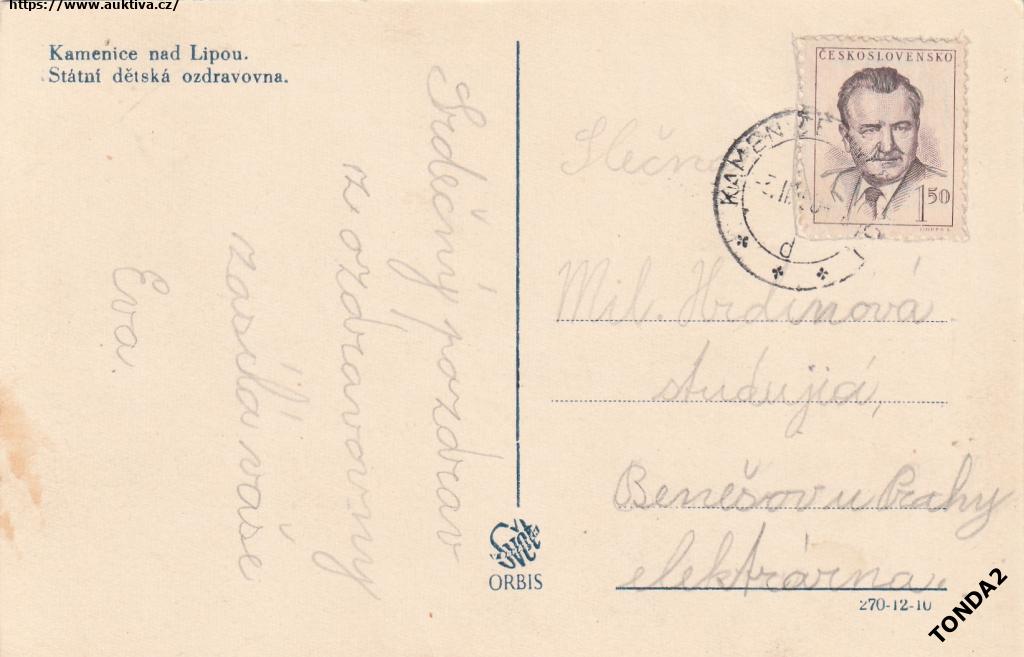 https://www.auktiva.cz/
Kamenice nad Lipou.
Státní dětská ozdravovna.
Srdečný pozdrav
z ozdravovny
zasílá vaše
Eva.
ČESKOSLOVENSKO
1 50
KAMENICE
d
Slečna
Mil. Hrdinová
studující,
Benešov u Prahy
elektrárna.
Svět
ORBIS
270-12-10
TONDA2